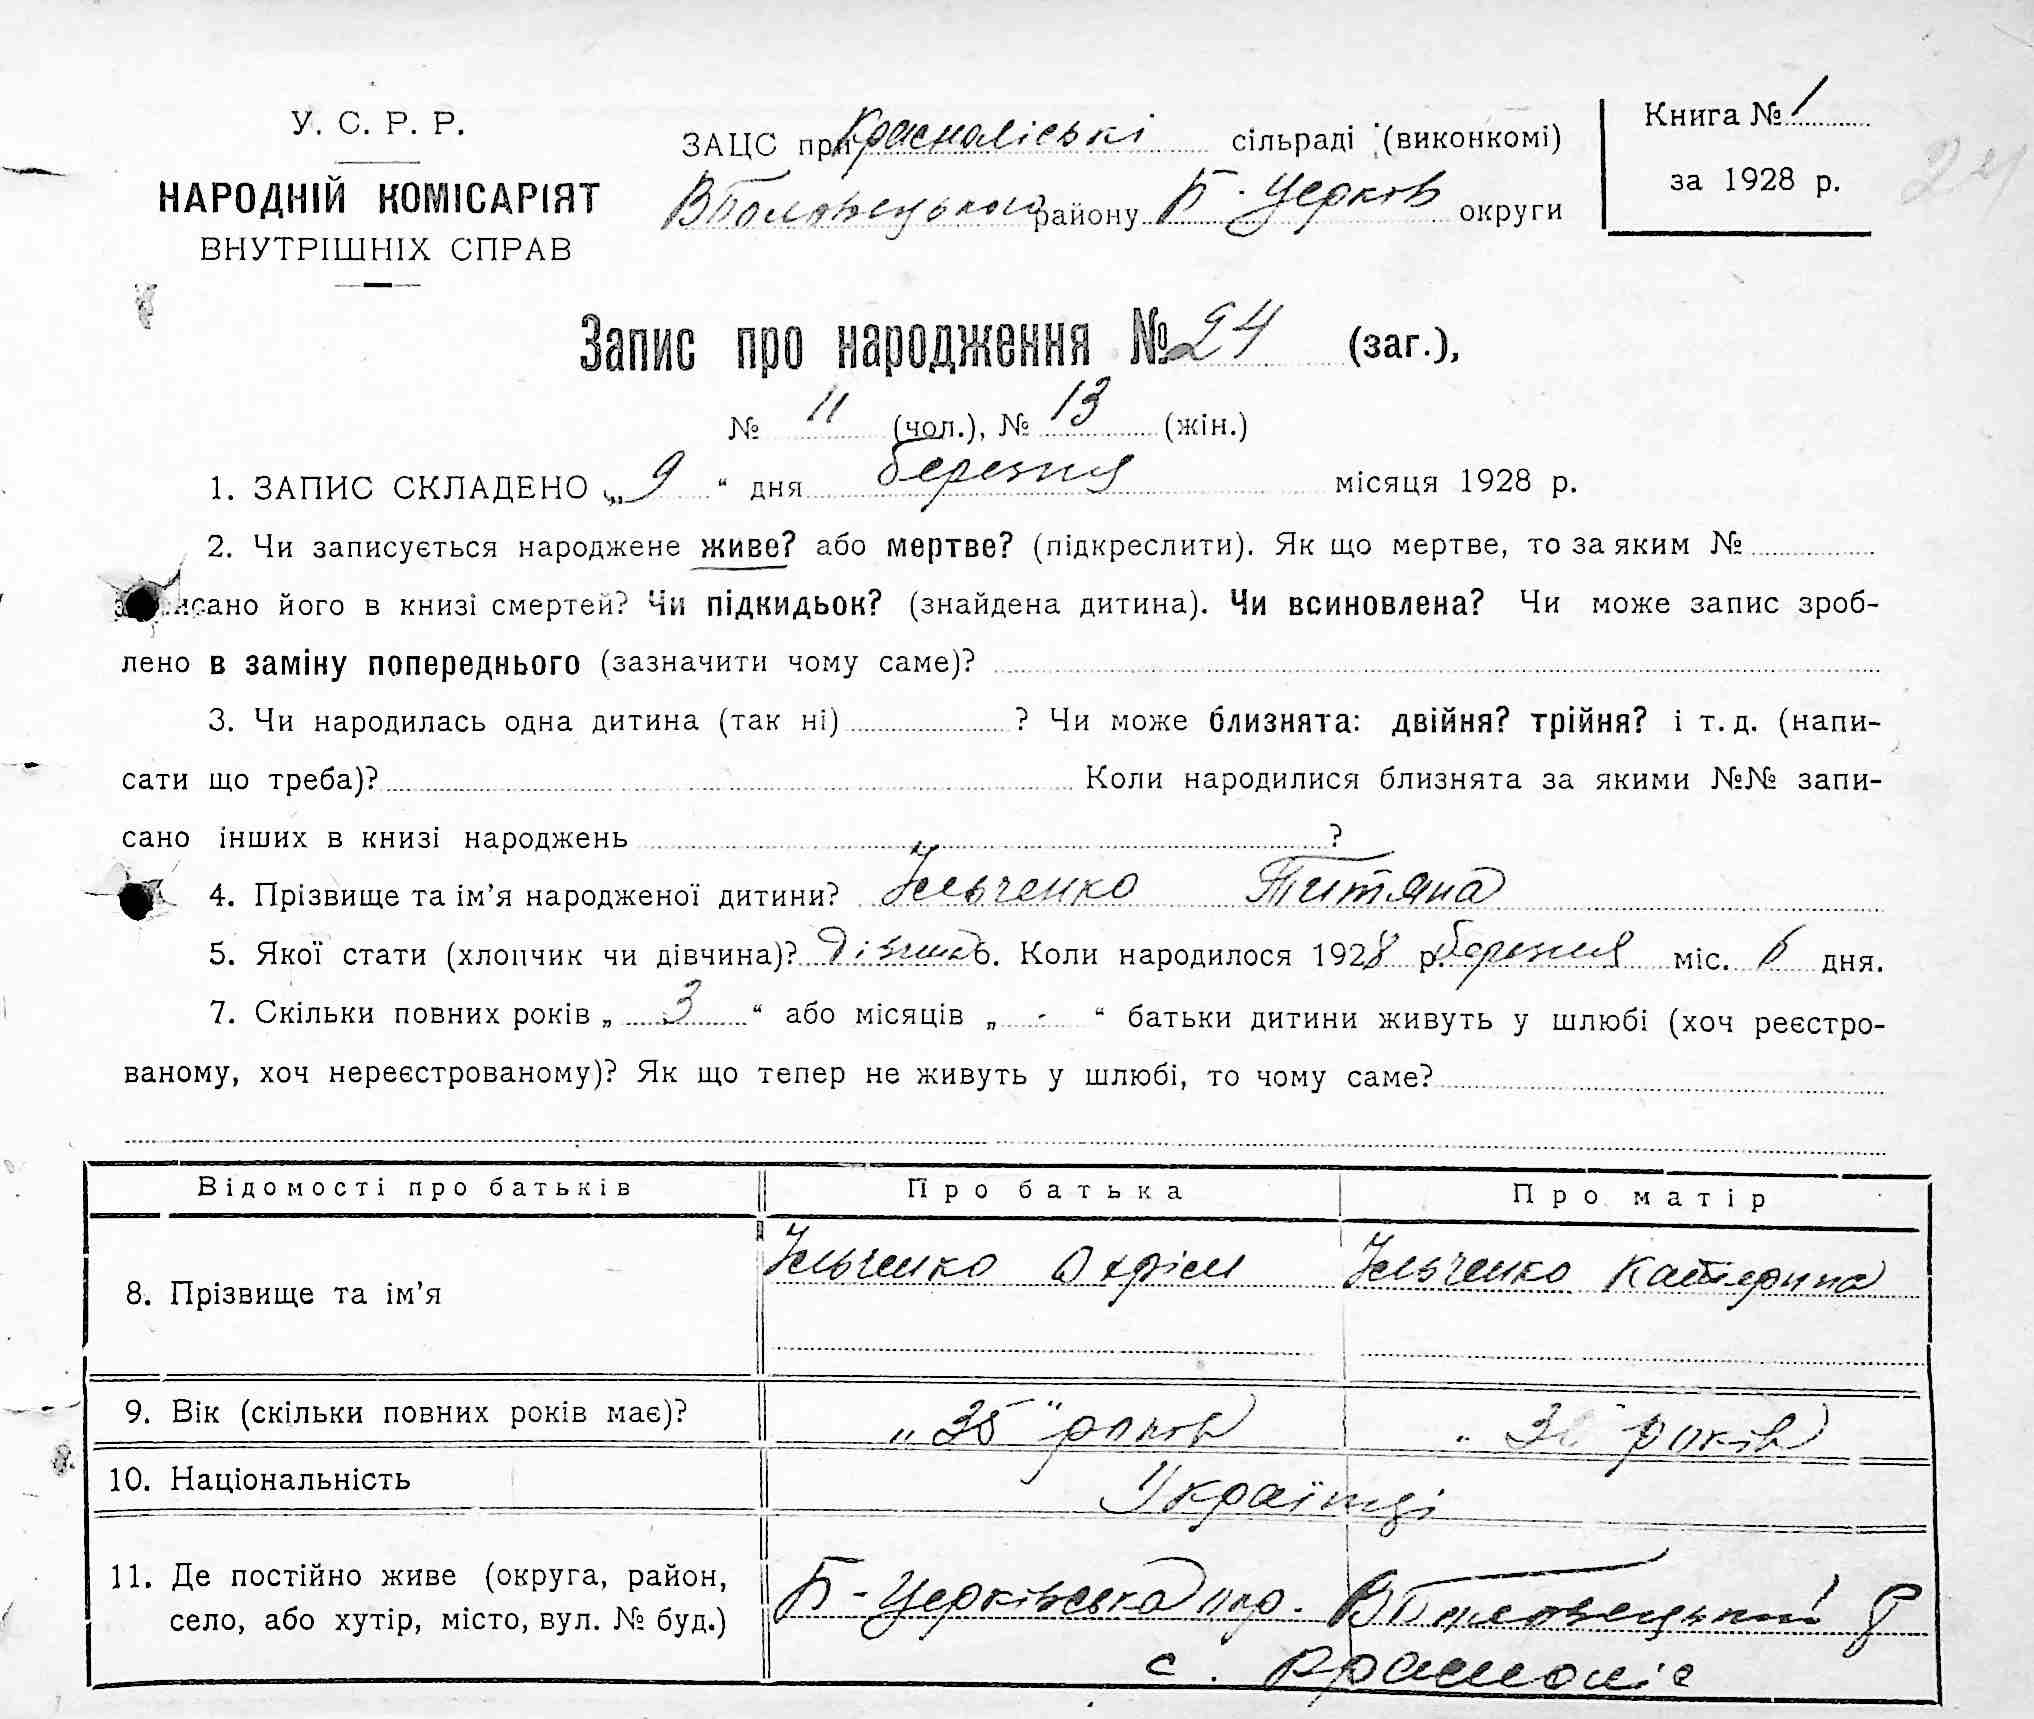 У. С. Р. Р.
НАРОДНІЙ КОМІСАРІЯТ
ВНУТРІШНІХ СПРАВ
ЗАЦС при Красноліські сільраді (виконкомі)
ВПоловецького району Б-Церків округи
Книга № 1
за 1928 р.
24
Запис про народження № 24 (заг.),
№ 11 (чол.), № 13 (жін.)
1. ЗАПИС СКЛАДЕНО „ 9 “ дня березня місяця 1928 р.
2. Чи записується народжене живе? або мертве? (підкреслити). Як що мертве, то за яким №
записано його в книзі смертей? Чи підкидьок? (знайдена дитина). Чи всиновлена? Чи може запис зроб-
лено в заміну попереднього (зазначити чому саме)?
3. Чи народилась одна дитина (так ні) ? Чи може близнята: двійня? трійня? і т. д. (напи-
сати що треба)? Коли народилися близнята за якими №№ запи-
сано інших в книзі народжень ?
4. Прізвище та ім’я народженої дитини? Ільченко Титяна
5. Якої стати (хлопчик чи дівчина)? дівчина 6. Коли народилось 1928 р. березня міс. 6 дня.
7. Скільки повних років „ 3 “ або місяців „ - “ батьки дитини живуть у шлюбі (хоч реєстро-
ваному, хоч нереєстрованому)? Як що тепер не живуть у шлюбі, то чому саме?
Відомості про батьків Про батька Про матір
8. Прізвище та ім’я Ільченко Охрім Ільченко Катерина
9. Вік (скільки повних років має)? „35“ років років
10. Національність Українці
11. Де постійно живе (округа, район,
село, або хутір, місто, вул. № буд.) Б-Церківська окр. ВПоловецький р
с. Красноліс